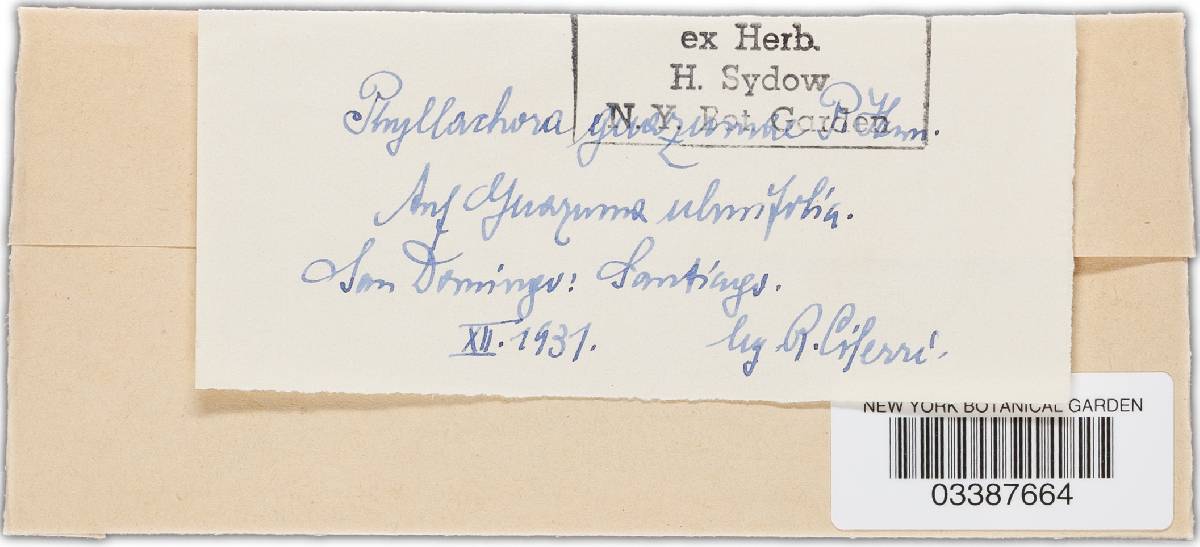 ex Herb.
H. Sydow
N. Y. Bot. Garden
Phyllachora guazumae P. Henn.
Auf Guazuma ulmifolia.
San Domingo: Santiago.
XII. 1931. leg. R. Ciferri.
NEW YORK BOTANICAL GARDEN
03387664